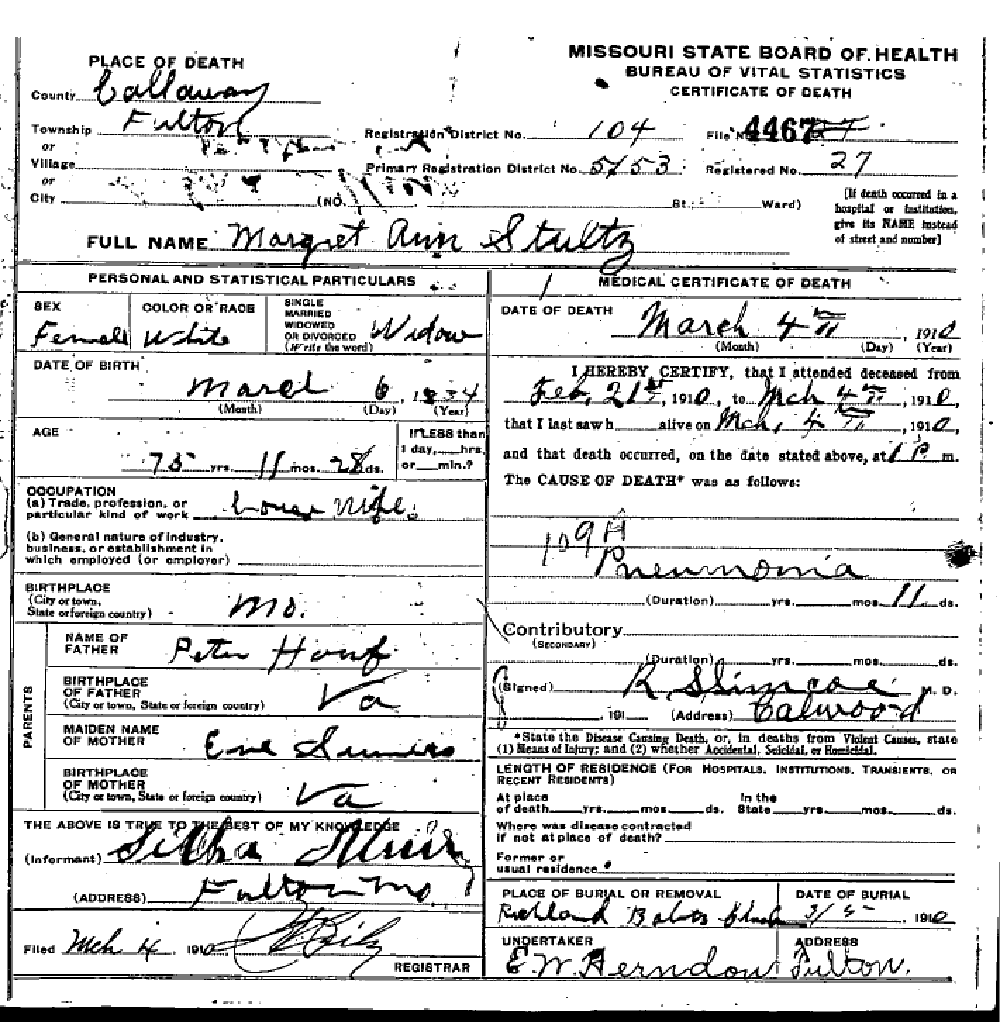 MISSOURI STATE BOARD OF HEALTH
BUREAU OF VITAL STATISTICS
CERTIFICATE OF DEATH
PLACE OF DEATH
County Callaway
Township Fulton
or
Village
or
City (NO. St. Ward)
Registration District No. 104 File No. 4467
Primary Registration District No. 5153 Registered No. 27
[If death occurred in a
hospital or institution,
give its NAME instead
of street and number]
FULL NAME Margret Ann Stultz
PERSONAL AND STATISTICAL PARTICULARS
SEX Female
COLOR OR RACE White
SINGLE
MARRIED
WIDOWED
OR DIVORCED
(Write the word) Widow
DATE OF BIRTH
March 6, 1834
(Month) (Day) (Year)
AGE
75 yrs. 11 mos. 28 ds.
If LESS than
1 day, hrs.
or min.?
OCCUPATION
(a) Trade, profession, or
particular kind of work house wife.
(b) General nature of industry,
business, or establishment in
which employed (or employer)
BIRTHPLACE
(City or town,
State or foreign country) Mo.
PARENTS
NAME OF
FATHER Peter Houf
BIRTHPLACE
OF FATHER
(City or town, State or foreign country) Va
MAIDEN NAME
OF MOTHER Eve
BIRTHPLACE
OF MOTHER
(City or town, State or foreign country) Va
THE ABOVE IS TRUE TO THE BEST OF MY KNOWLEDGE
(Informant)
(ADDRESS) Fulton Mo
Filed Mch 4 1910
REGISTRAR
MEDICAL CERTIFICATE OF DEATH
DATE OF DEATH
March 4th, 1910
(Month) (Day) (Year)
I HEREBY CERTIFY, that I attended deceased from
Feb, 21st, 1910, to Mch 4th, 1910,
that I last saw h alive on Mch, 4th, 1910,
and that death occurred, on the date stated above, at 1 P. m.
The CAUSE OF DEATH* was as follows:
109A
Pneumonia
(Duration) yrs. mos. 11 ds.
Contributory
(SECONDARY)
(Duration) yrs. mos. ds.
(Signed) R. S. Simcoe M. D.
, 191 (Address) Calwood
*State the Disease Causing Death, or, in deaths from Violent Causes, state
(1) Means of Injury; and (2) whether Accidental, Suicidal, or Homicidal.
LENGTH OF RESIDENCE (FOR HOSPITALS, INSTITUTIONS, TRANSIENTS, OR
RECENT RESIDENTS)
At place In the
of death yrs. mos. ds. State yrs. mos. ds.
Where was disease contracted
if not at place of death?
Former or
usual residence
PLACE OF BURIAL OR REMOVAL
Richland
DATE OF BURIAL
3/5 1910
UNDERTAKER
E. W. Herndon
ADDRESS
Fulton.